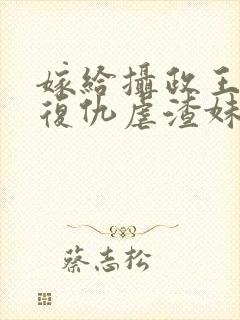 嫁給攝政王
復仇虐渣妹
蔡志松